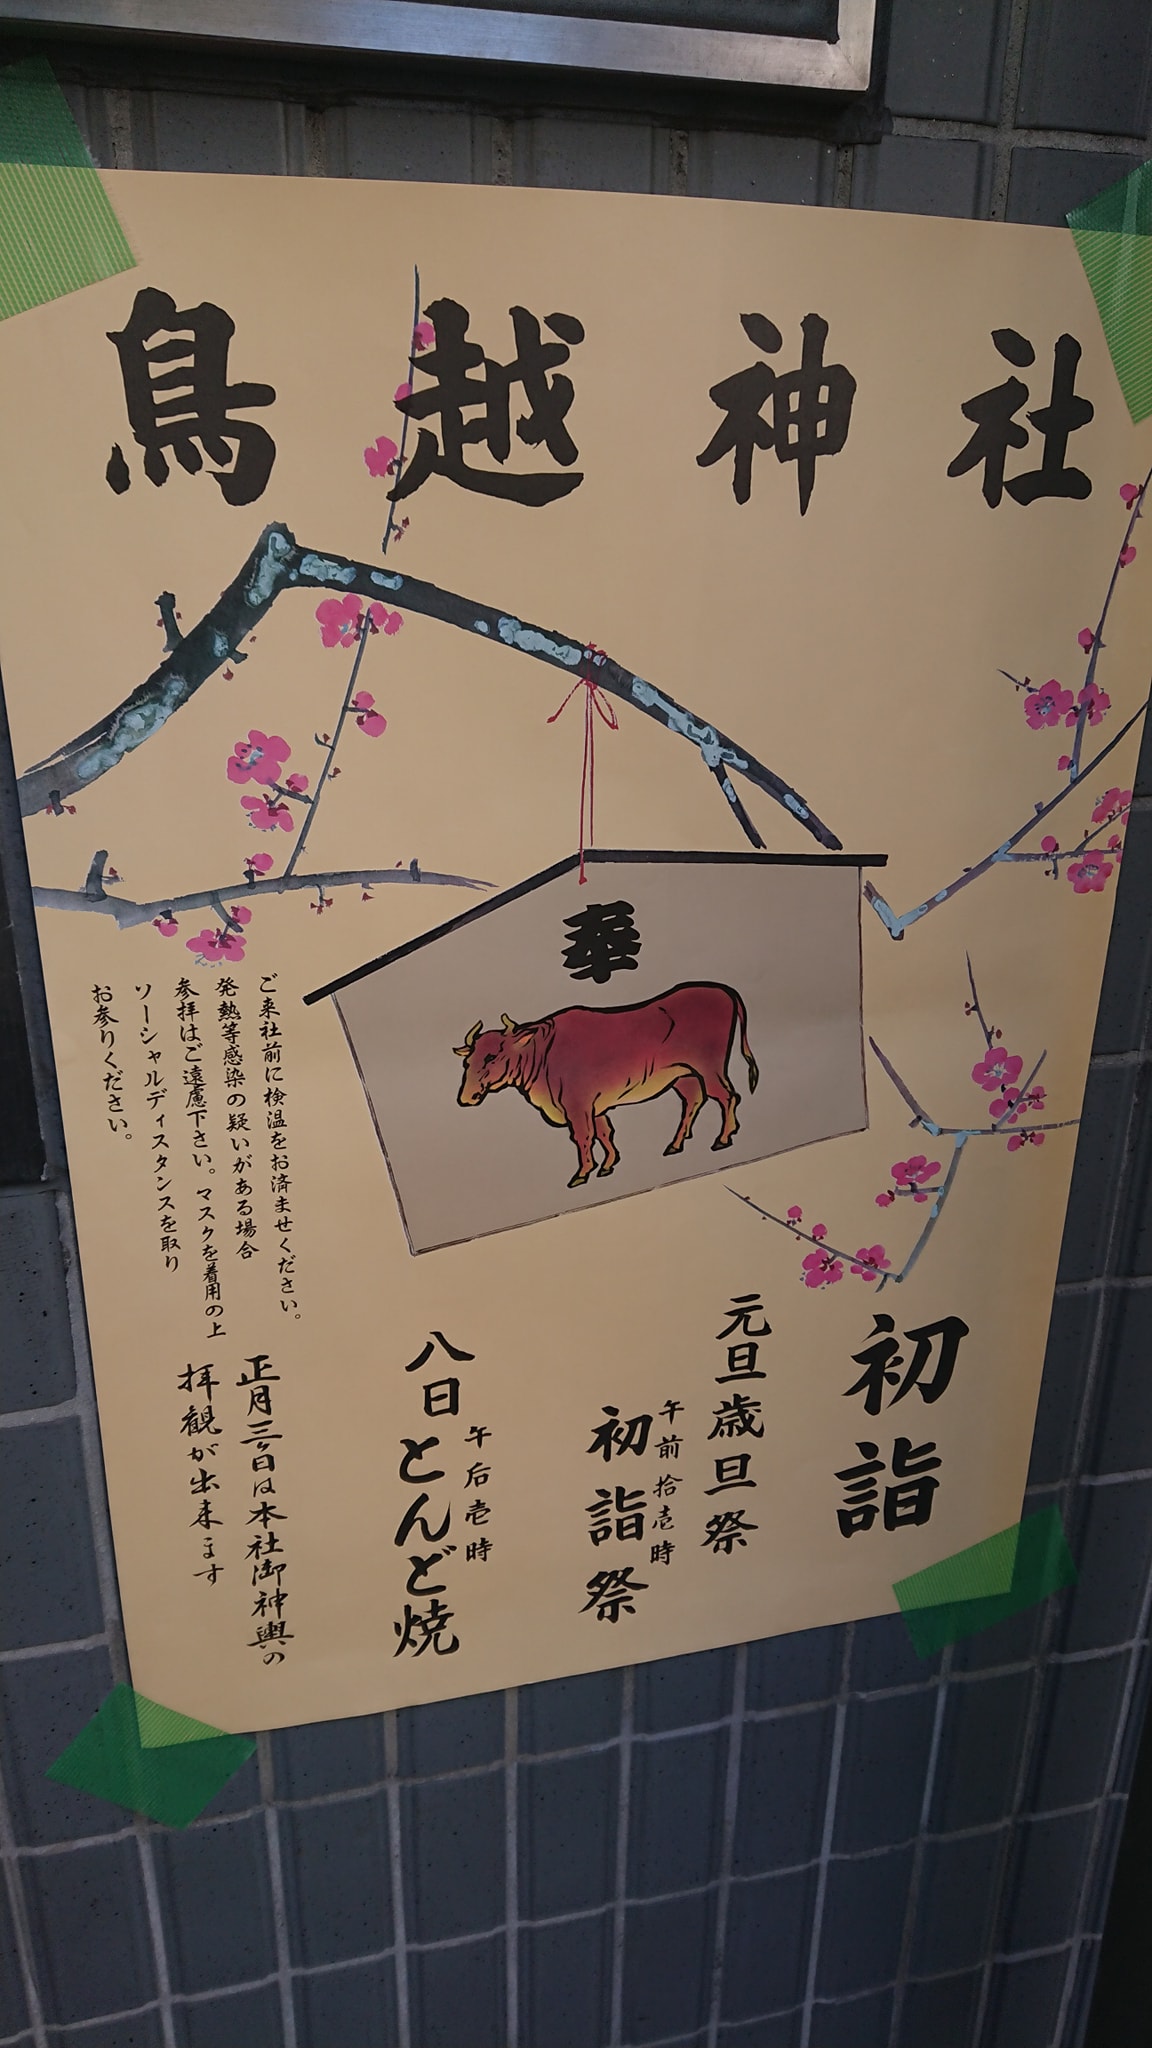 鳥越神社
奉
初詣
元旦歳旦祭
午前拾壱時
初詣祭
八日とんど焼
午后壱時
正月三ヶ日は本社御神輿の
拝観が出来ます
ご来社前に検温をお済ませください。
発熱等感染の疑いがある場合
参拝はご遠慮下さい。マスクを着用の上
ソーシャルディスタンスを取り
お参りください。